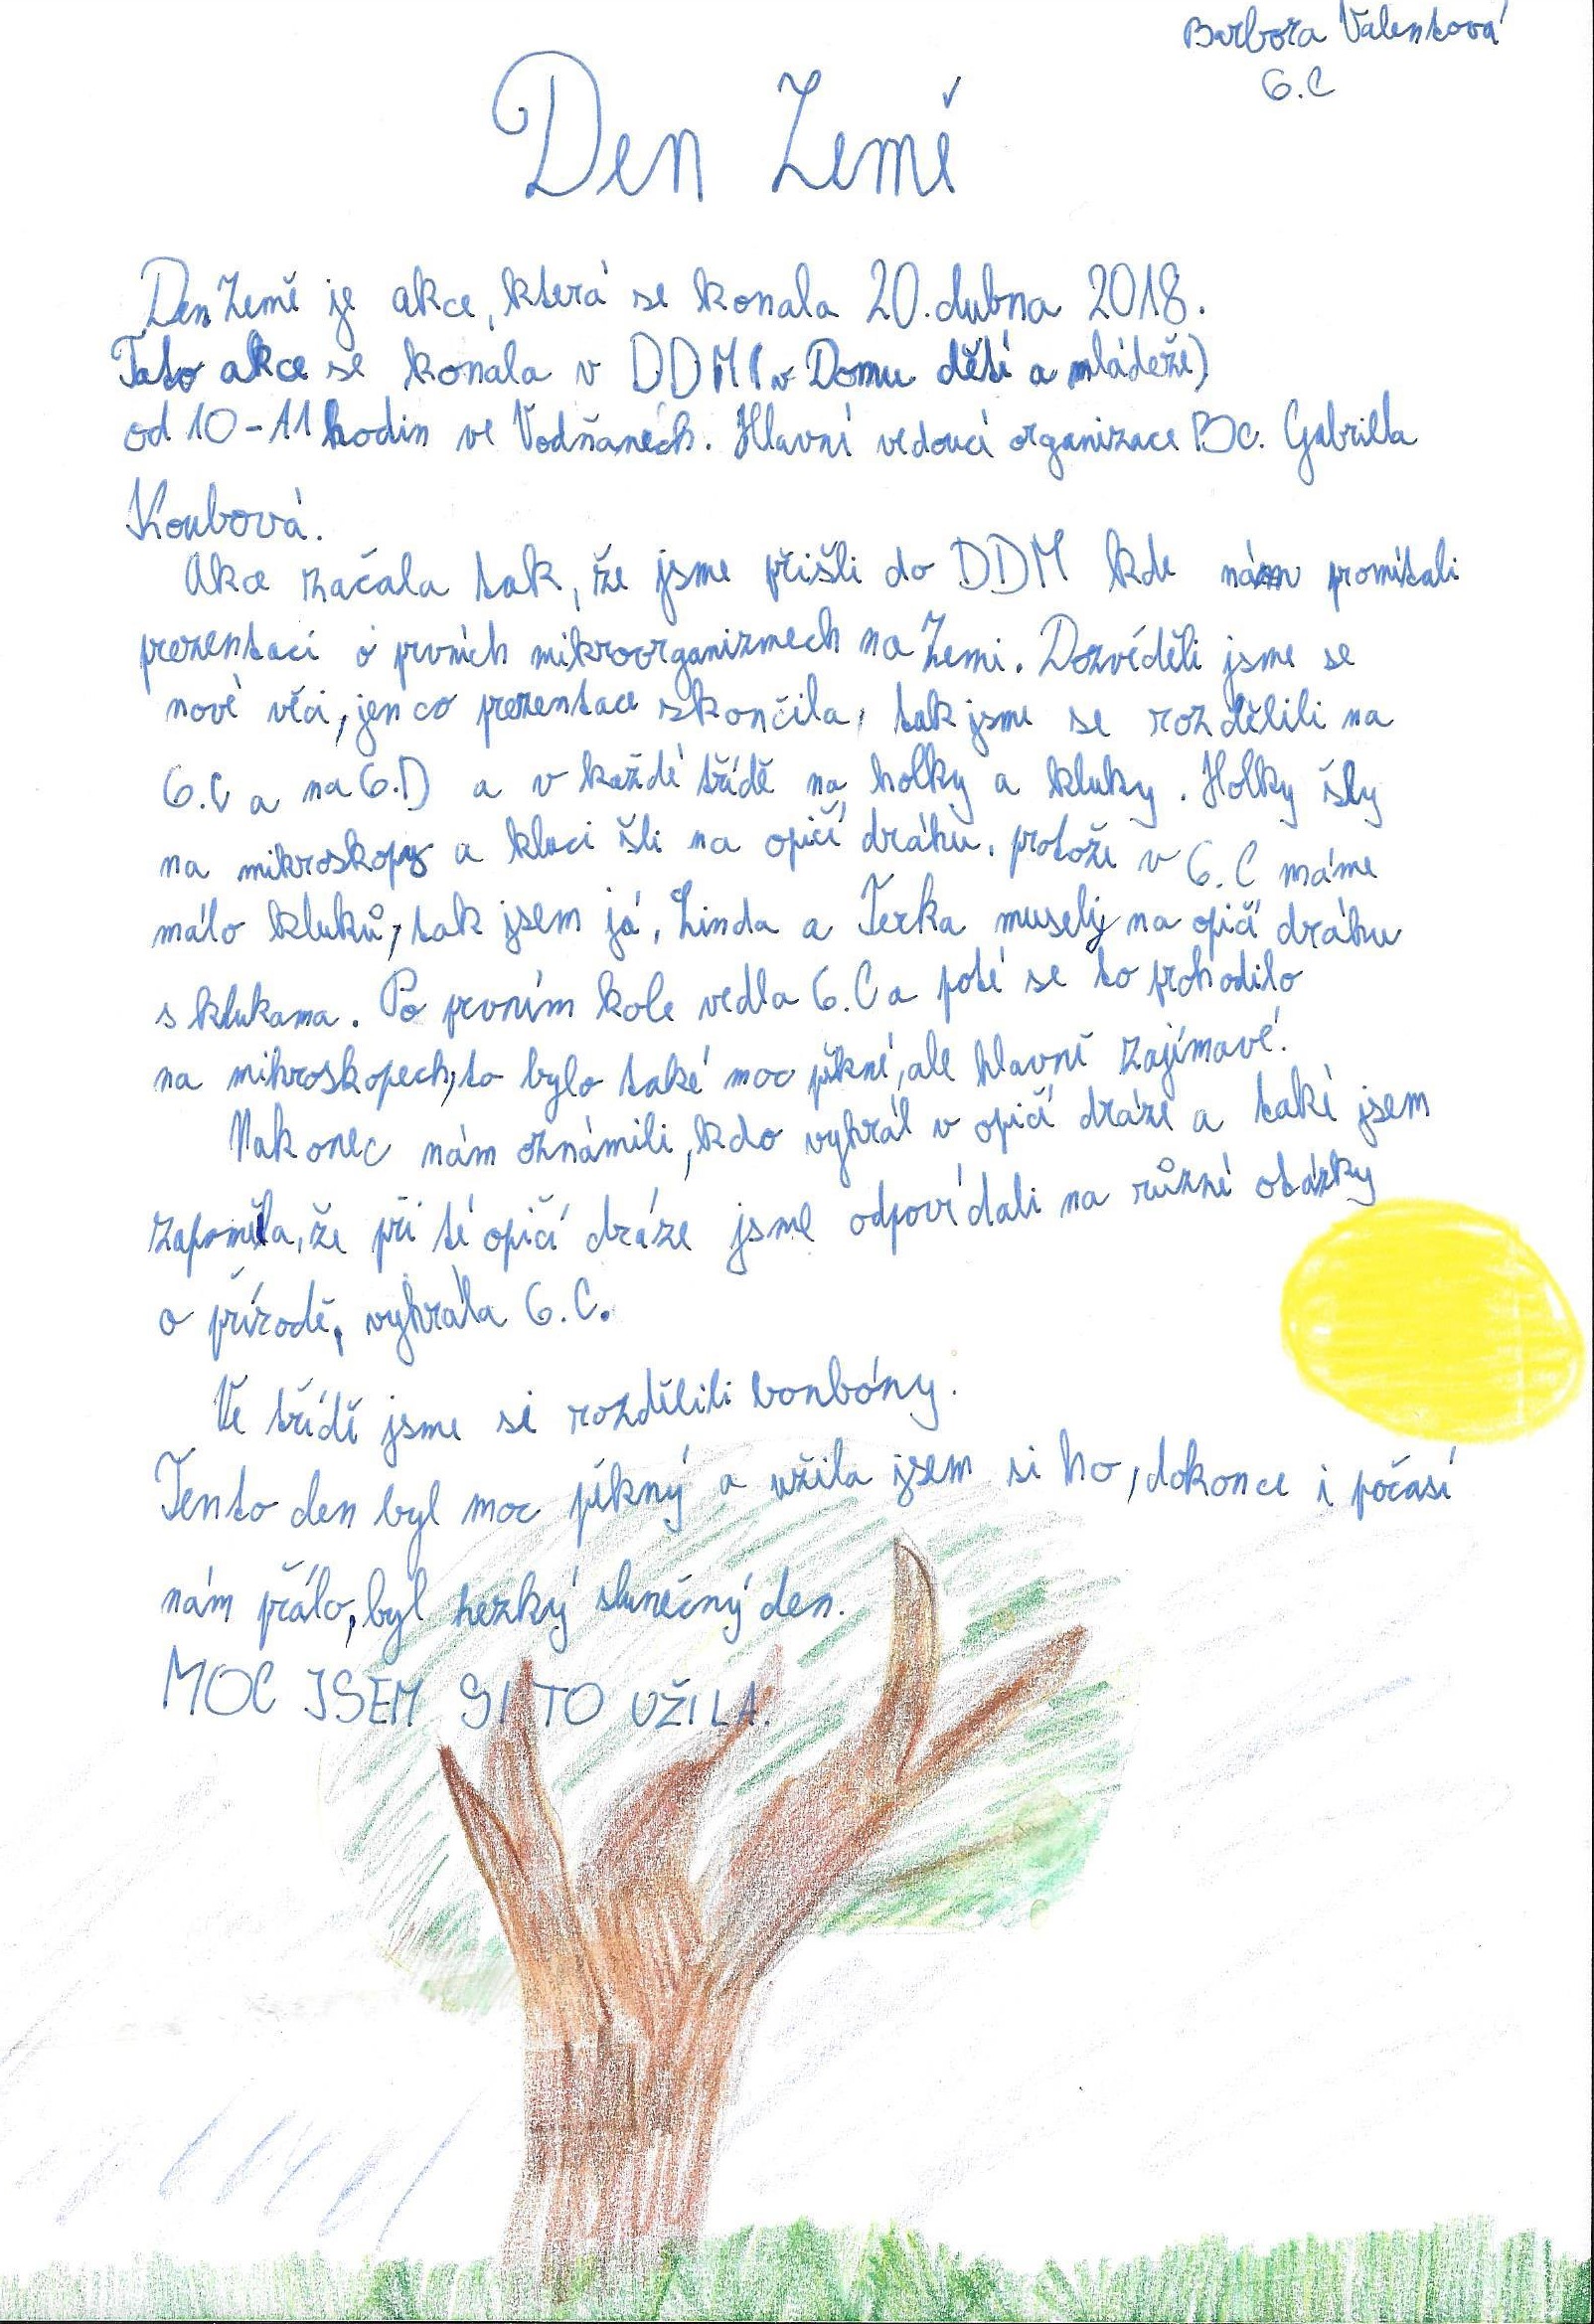 Barbora Valentová
6.C
Den Země
Den Země je akce, která se konala 20. dubna 2018.
Tato akce se konala v DDM (v Domu dětí a mládeže)
od 10-11 hodin ve Vodňanech. Hlavní vedoucí organizace Bc. Gabriella
Koubová.
Akce začala tak, že jsme přišli do DDM kde nám promítali
prezentaci o prvních mikroorganizmech na Zemi. Dozvěděli jsme se
nové věci, jen co prezentace skončila, tak jsme se rozdělili na
6.C a na 6.D a v každé třídě na holky a kluky. Holky šly
na mikroskopy a kluci šli na opičí dráhu, protože v 6.C máme
málo kluků, tak jsem já, Linda a Terka musely na opičí dráhu
s klukama. Po prvním kole vedla 6.C a poté se to prohodilo
na mikroskopech, to bylo také moc pěkné, ale hlavně zajímavé.
Nakonec nám oznámili, kdo vyhrál v opičí dráze a také jsem
zapoměla, že při té opičí dráze jsme odpovídali na různé otázky
o přírodě, vyhrála 6.C.
Ve třídě jsme si rozdělili bonbóny.
Tento den byl moc pěkný a užila jsem si ho, dokonce i počasí
nám přálo, byl hezký slunečný den.
MOC JSEM SI TO UŽILA.